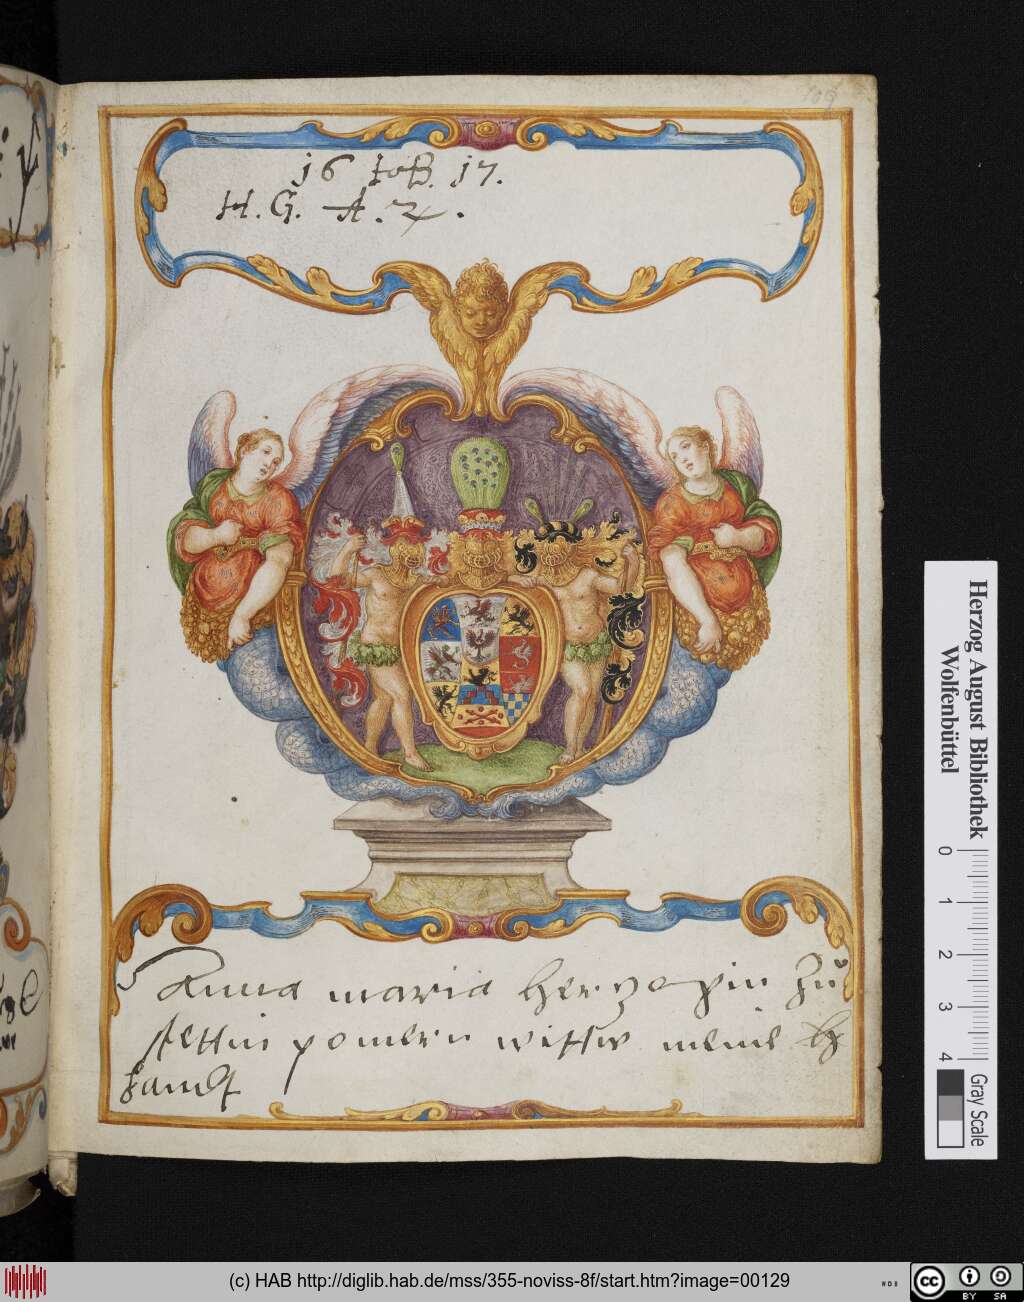 109
16 ToB. 17.
H. G. A. Z.
Anna maria herzogin zu
stettin pomern witfw meine
handt
Herzog August Bibliothek
Wolfenbüttel
0 1 2 3 4
Gray Scale
(c) HAB http://diglib.hab.de/mss/355-noviss-8f/start.htm?image=00129
WDB
cc BY SA